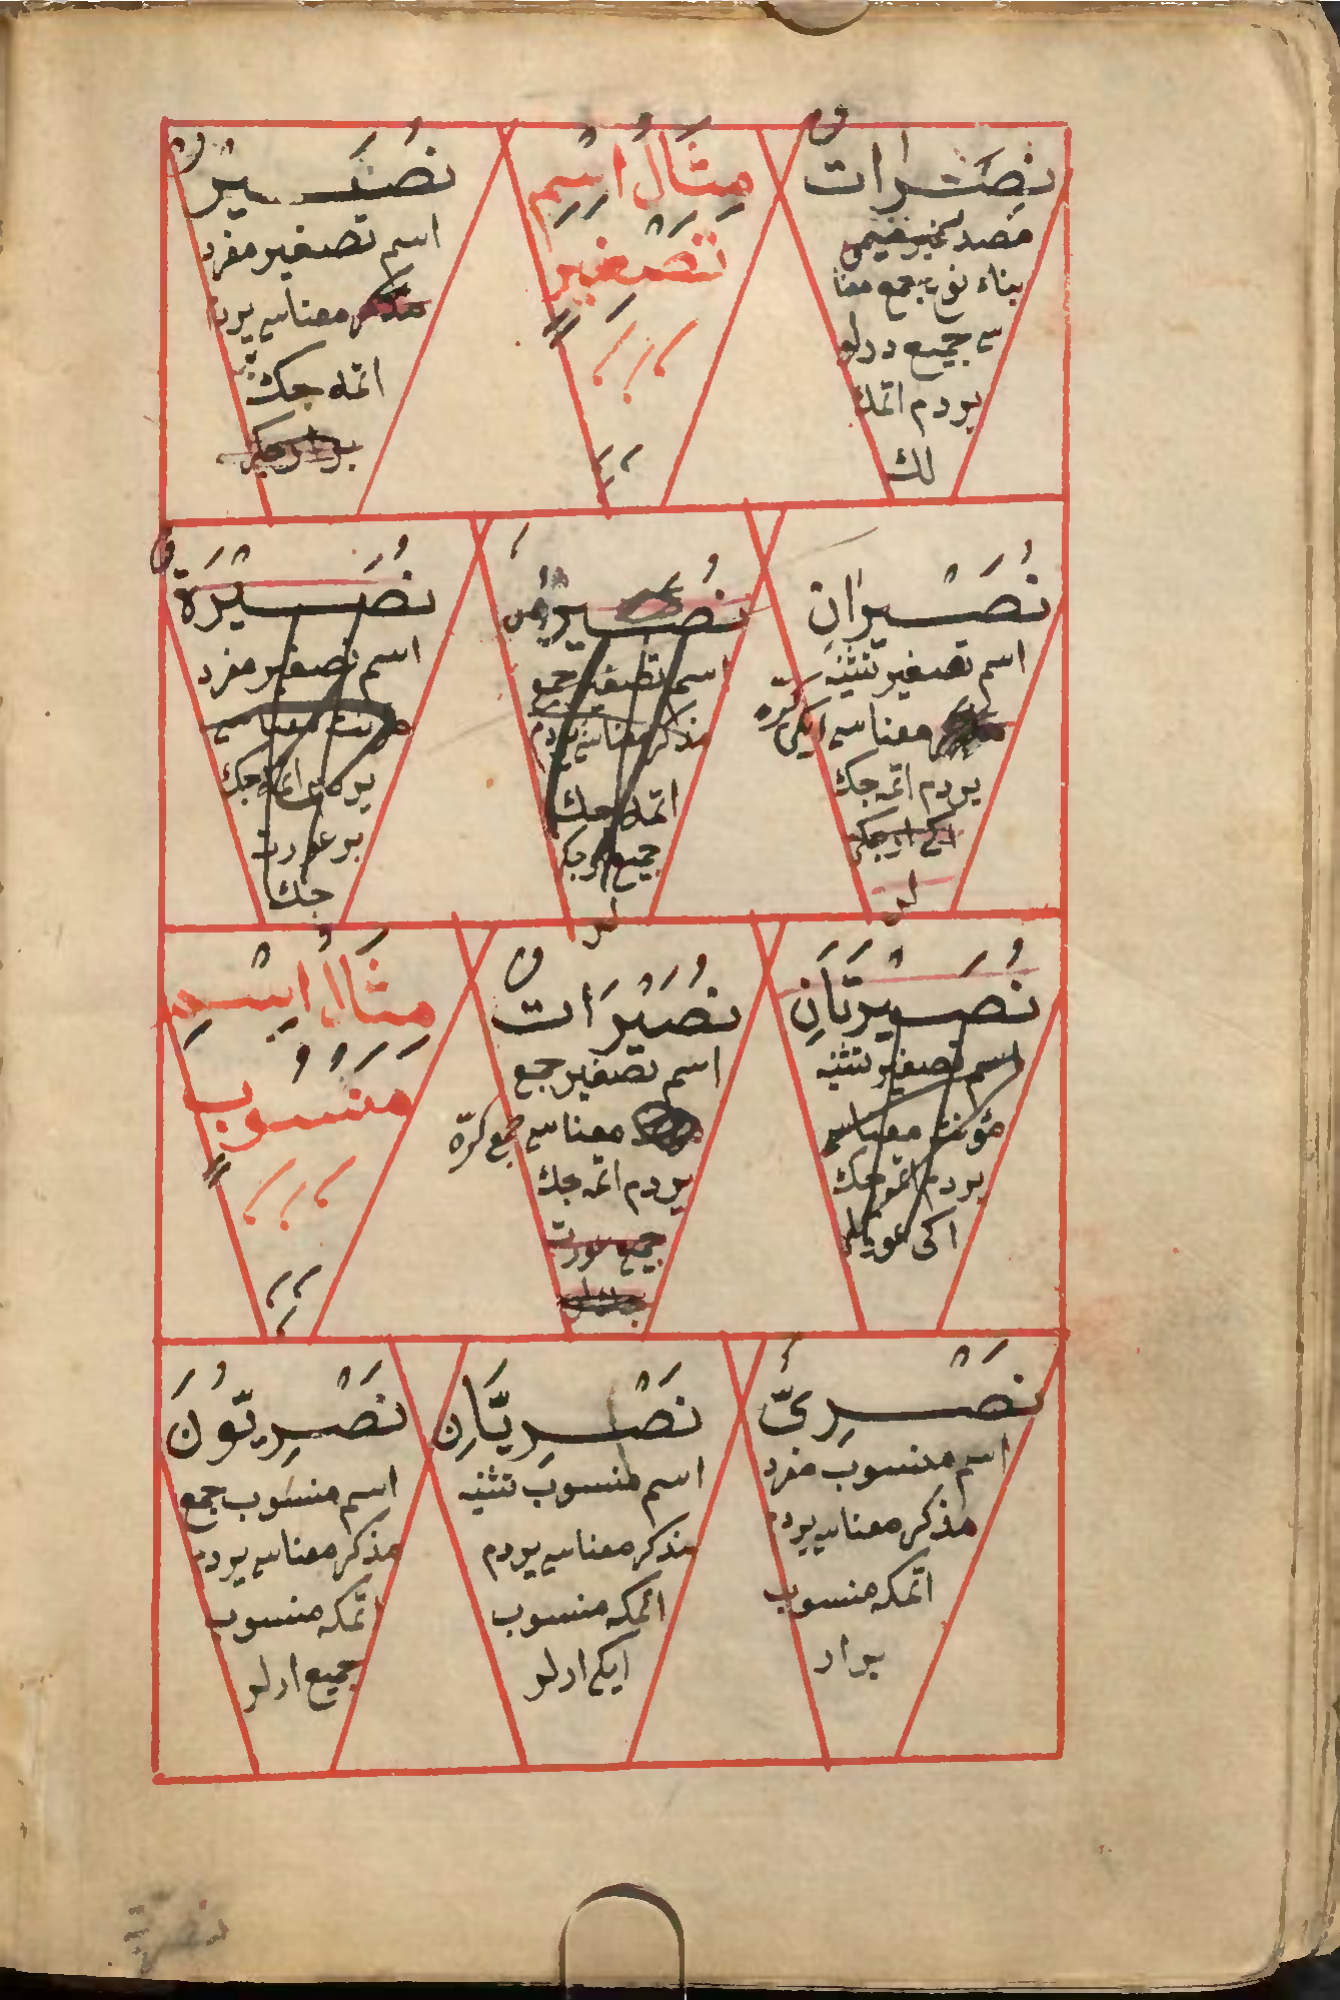 نَصَرَات
مصدر غير ميمى
بناء نوع جمع معنا
سى جميع درلو
يردم اتمك
لك
مِثَالُ اسْمِ
تَصْغِيرٍ
نُصَيْرٌ
اسم تصغير مفرد
مذكر معناسى يردم
اتمه جك
نُصَيْرَانِ
اسم تصغير تثنيه
معناسى ايكى كرّه
يردم اتمه جك
ايكى ارجكز
لر
نُصَيْرُونَ
اسم تصغير جمع
مذكر معناسى يردم
اتمه جك
جميع ارجكز
لر
نُصَيْرَة
اسم تصغير مفرد
مؤنث معناسى
يردم اتمه جك
بر عورت
جك
نُصَيْرَتَانِ
اسم تصغير تثنيه
مؤنث معناسى
يردم اتمه جك
اكى عورتلر
نُصَيْرَات
اسم تصغير جمع
معناسى جمع كرّه
يردم اتمه جك
جميع عورت
مِثَالُ اسْمِ
مَنْسُوبٍ
نَصْرِىٌّ
اسم منسوب مفرد
مذكر معناسى يردم
اتمكه منسوب
بر ار
نَصْرِيَّانِ
اسم منسوب تثنيه
مذكر معناسى يردم
اتمكه منسوب
ايكى ارلر
نَصْرِيُّونَ
اسم منسوب جمع
مذكر معناسى يردم
اتمكه منسوب
جميع ارلر
نصرية